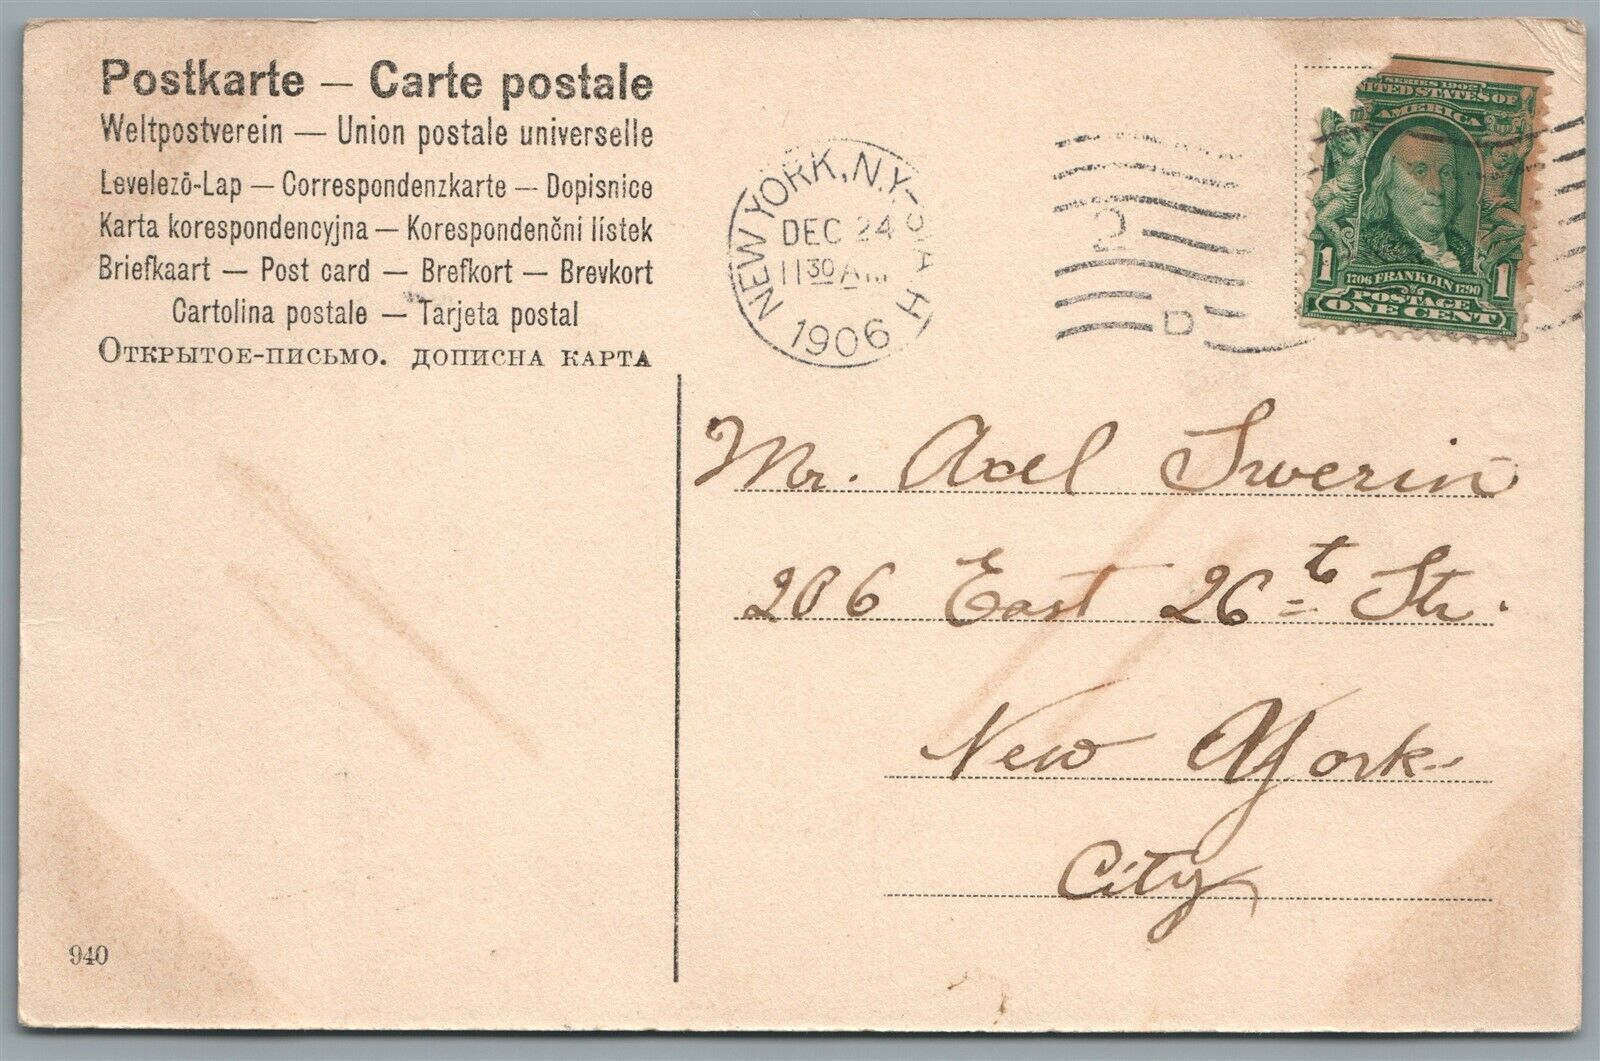 Postkarte — Carte postale
Weltpostverein — Union postale universelle
Levelező-Lap — Correspondenzkarte — Dopisnice
Karta korespondencyjna — Korespondenčni lístek
Briefkaart — Post card — Brefkort — Brevkort
Cartolina postale — Tarjeta postal
Открытое-письмо. дописна карта
NEW YORK, N.Y. STA H
DEC 24
11 30 AM
1906
2
D
SERIES 1902
UNITED STATES OF
AMERICA
1706 FRANKLIN 1790
1 POSTAGE 1
ONE CENT
Mr. Axel Swerin
206 East 26th Str.
New York
City
940